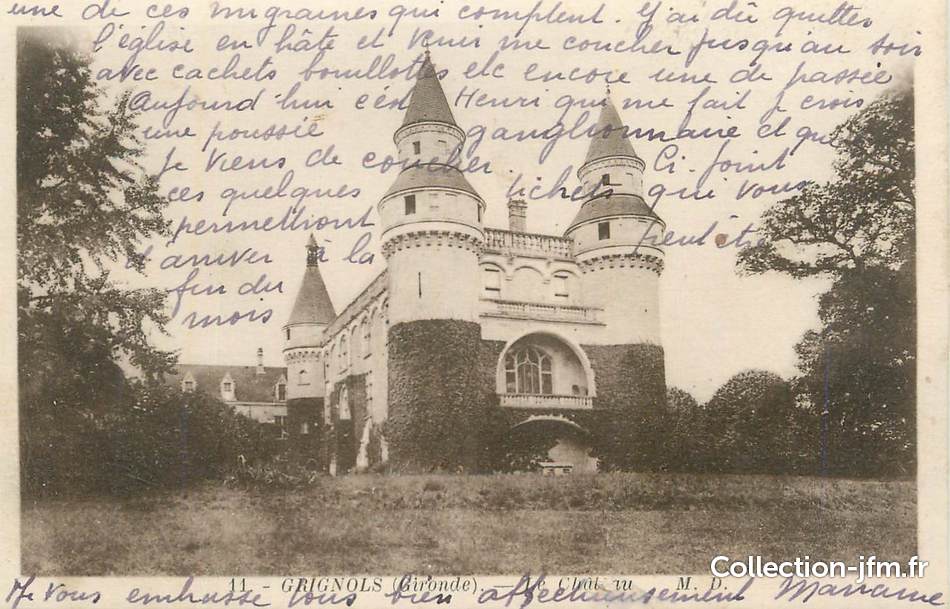 une de ces migraines qui comptent. J'ai dû quitter
l'église en hâte et venir me coucher jusqu'au soir
avec cachets bouillottes etc encore une de passée
Aujourd'hui c'est Henri qui me fait je crois
une poussée ganglionnaire et que
je viens de coucher. Ci joint
ces quelques tickets qui vous
permettront peut être
d'arriver à la
fin du
mois
11. - GRIGNOLS (Gironde). — Le Château M. D.
Collection-jfm.fr
Je vous embrasse tous bien affectueusement Mariame